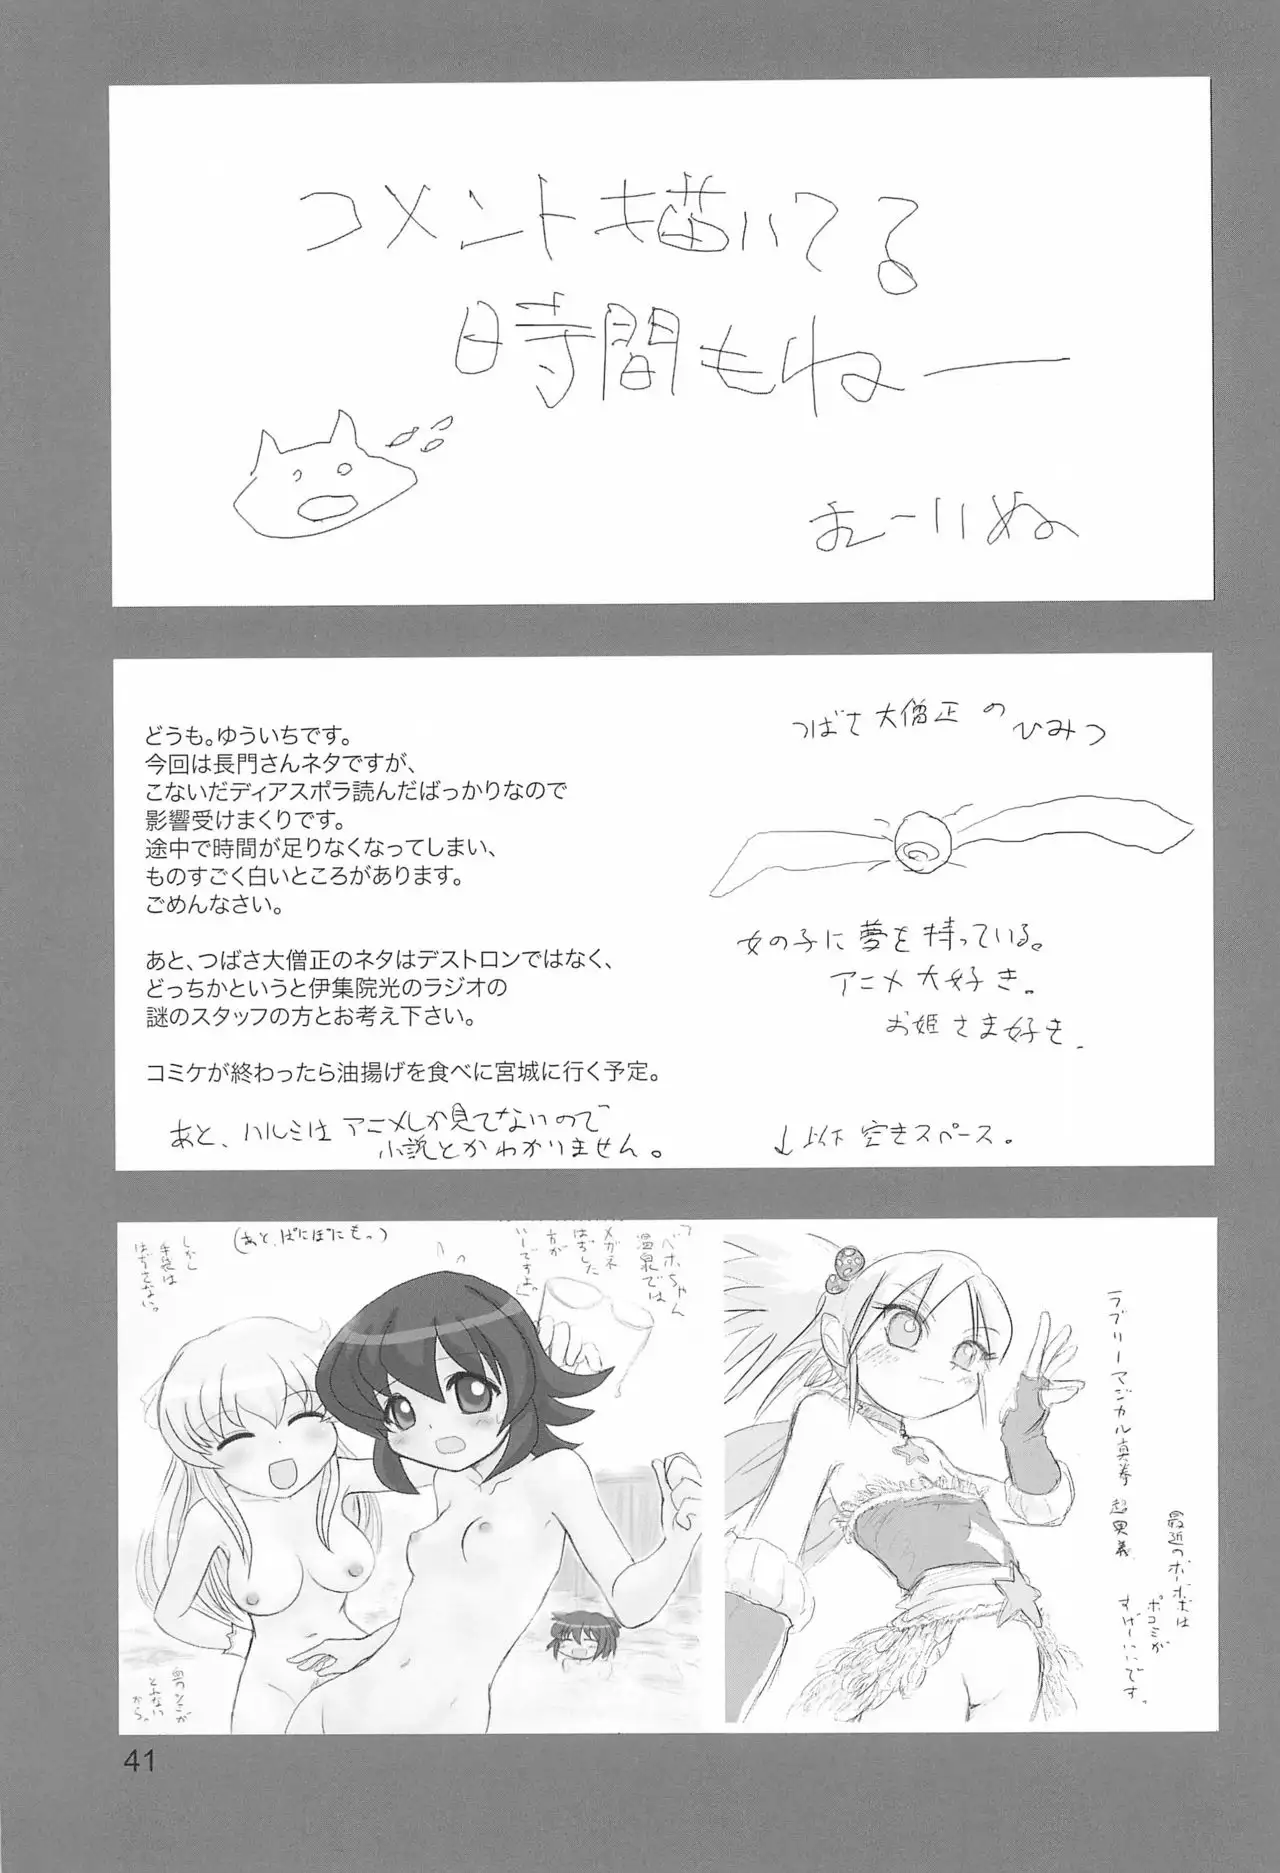 コメントも描いてる
時間もねー
おーいぬ
どうも。ゆういちです。
今回は長門さんネタですが、
こないだディアスポラ読んだばっかりなので
影響受けまくりです。
途中で時間が足りなくなってしまい、
ものすごく白いところがあります。
ごめんなさい。
あと、つばさ大僧正のネタはデストロンではなく、
どっちかというと伊集院光のラジオの
謎のスタッフの方とお考え下さい。
コミケが終わったら油揚げを食べに宮城に行く予定。
あと、ハルミはアニメしか見てないので
小説とかわかりません。
つばさ大僧正の
ひみつ
女の子に夢を持っている。
アニメ大好き。
お姫さま好き。
↓以下空きスペース。
「ベホちゃん
温泉では
メガネ
はずした
方が
いーですよ。」
(あと、ぱにぽにもっ)
しかし
手袋は
はずさない。
とぶない
から。
ラブリーマジカル真拳
超奥義
最近のボーボボは
ポコミが
すげーいいです。
41